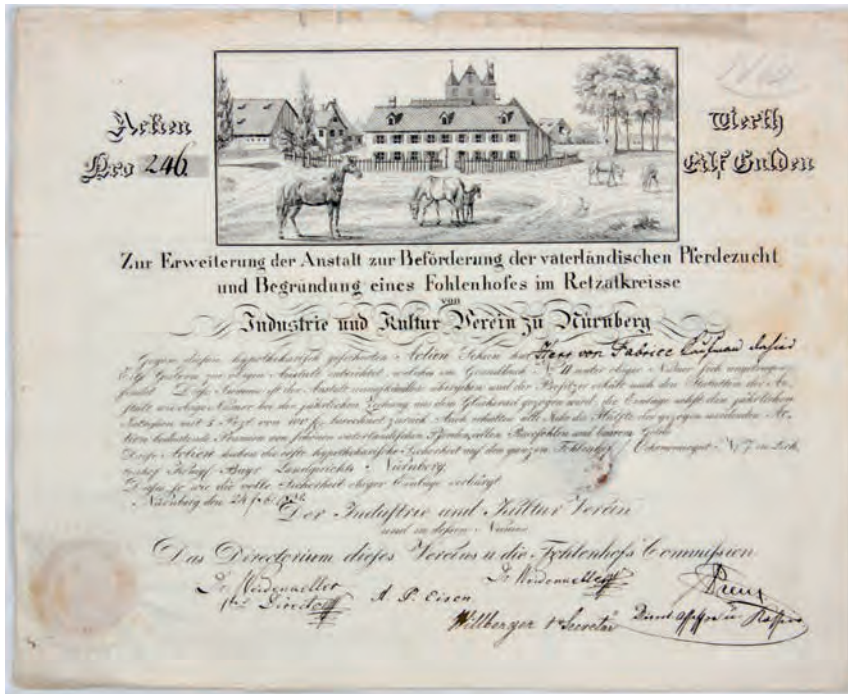 Actien
Nro 246.
Werth
Elf Gulden
Zur Erweiterung der Anstalt zur Beförderung der vaterländischen Pferdezucht
und Begründung eines Fohlenhofes im Retzatkreisse
von
Industrie und Kultur Verein zu Nürnberg
Gegen diesen hypothekarisch gesicherten Actien Schein hat Herr von Fabrice
Elf Gulden zur obigen Anstalt entrichtet, welche im Grundbuch
Diese Summe ist der Anstalt und der Besitzer erhält nach den Statuten der An-
stalt wie obige Numer bei der jährlichen Ziehung aus dem Glücksrad gezogen wird, die Einlage nebst den jährlichen
Interessen mit 3 Prozt von 100 f. berechnet zurück. Auch erhalten alle Jahr die Hälfte der gezogen werdenden Ac-
tien bedeutende Prämien von schönen vaterländischen Pferden, edlen Racefohlen und baarem Gelde.
Diese Actien haben die erste hypothekarische Sicherheit auf den ganzen Fohlenhof
Königl. Bayr. Landgerichts Nürnberg.
Diesen so wie die volle Sicherheit obiger Einlage verbürgt
Nürnberg den 24
Der Industrie und Kultur Verein
und in dessen Namen
Das Directorium dieses Vereins u die Fohlenhofs Commission
Dr Weidenkeller
Dr Weidenkeller
1ter Director
A. P. Eisen
Willberger 1r Secretär